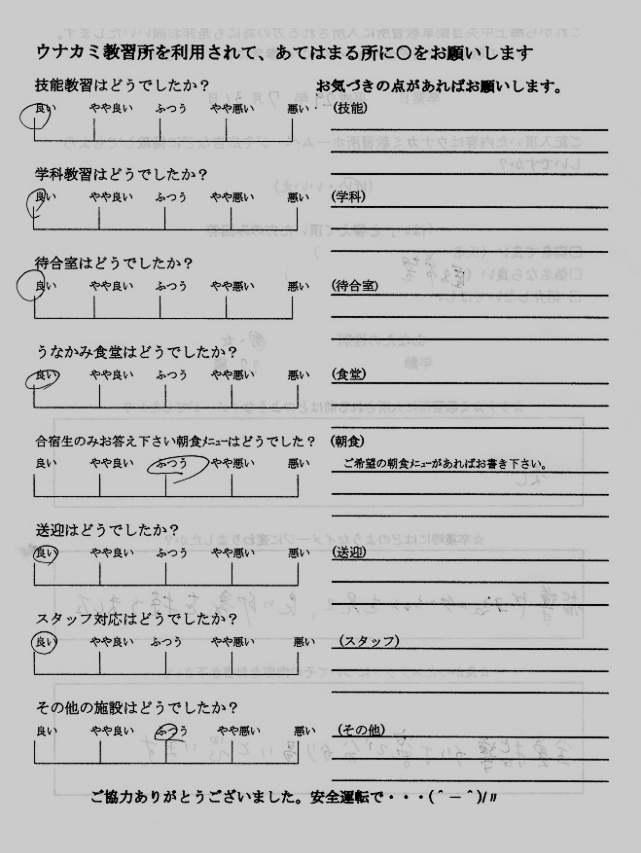 ウナカミ教習所を利用されて、あてはまる所に○をお願いします
技能教習はどうでしたか？
お気づきの点があればお願いします。
良い やや良い ふつう やや悪い 悪い
(技能)
学科教習はどうでしたか？
良い やや良い ふつう やや悪い 悪い
(学科)
待合室はどうでしたか？
良い やや良い ふつう やや悪い 悪い
(待合室)
うなかみ食堂はどうでしたか？
良い やや良い ふつう やや悪い 悪い
(食堂)
合宿生のみお答え下さい朝食ﾒﾆｭｰはどうでした？
(朝食)
良い やや良い ふつう やや悪い 悪い
ご希望の朝食ﾒﾆｭｰがあればお書き下さい。
送迎はどうでしたか？
良い やや良い ふつう やや悪い 悪い
(送迎)
スタッフ対応はどうでしたか？
良い やや良い ふつう やや悪い 悪い
(スタッフ)
その他の施設はどうでしたか？
良い やや良い ふつう やや悪い 悪い
(その他)
ご協力ありがとうございました。安全運転で・・・(＾－＾)/〃